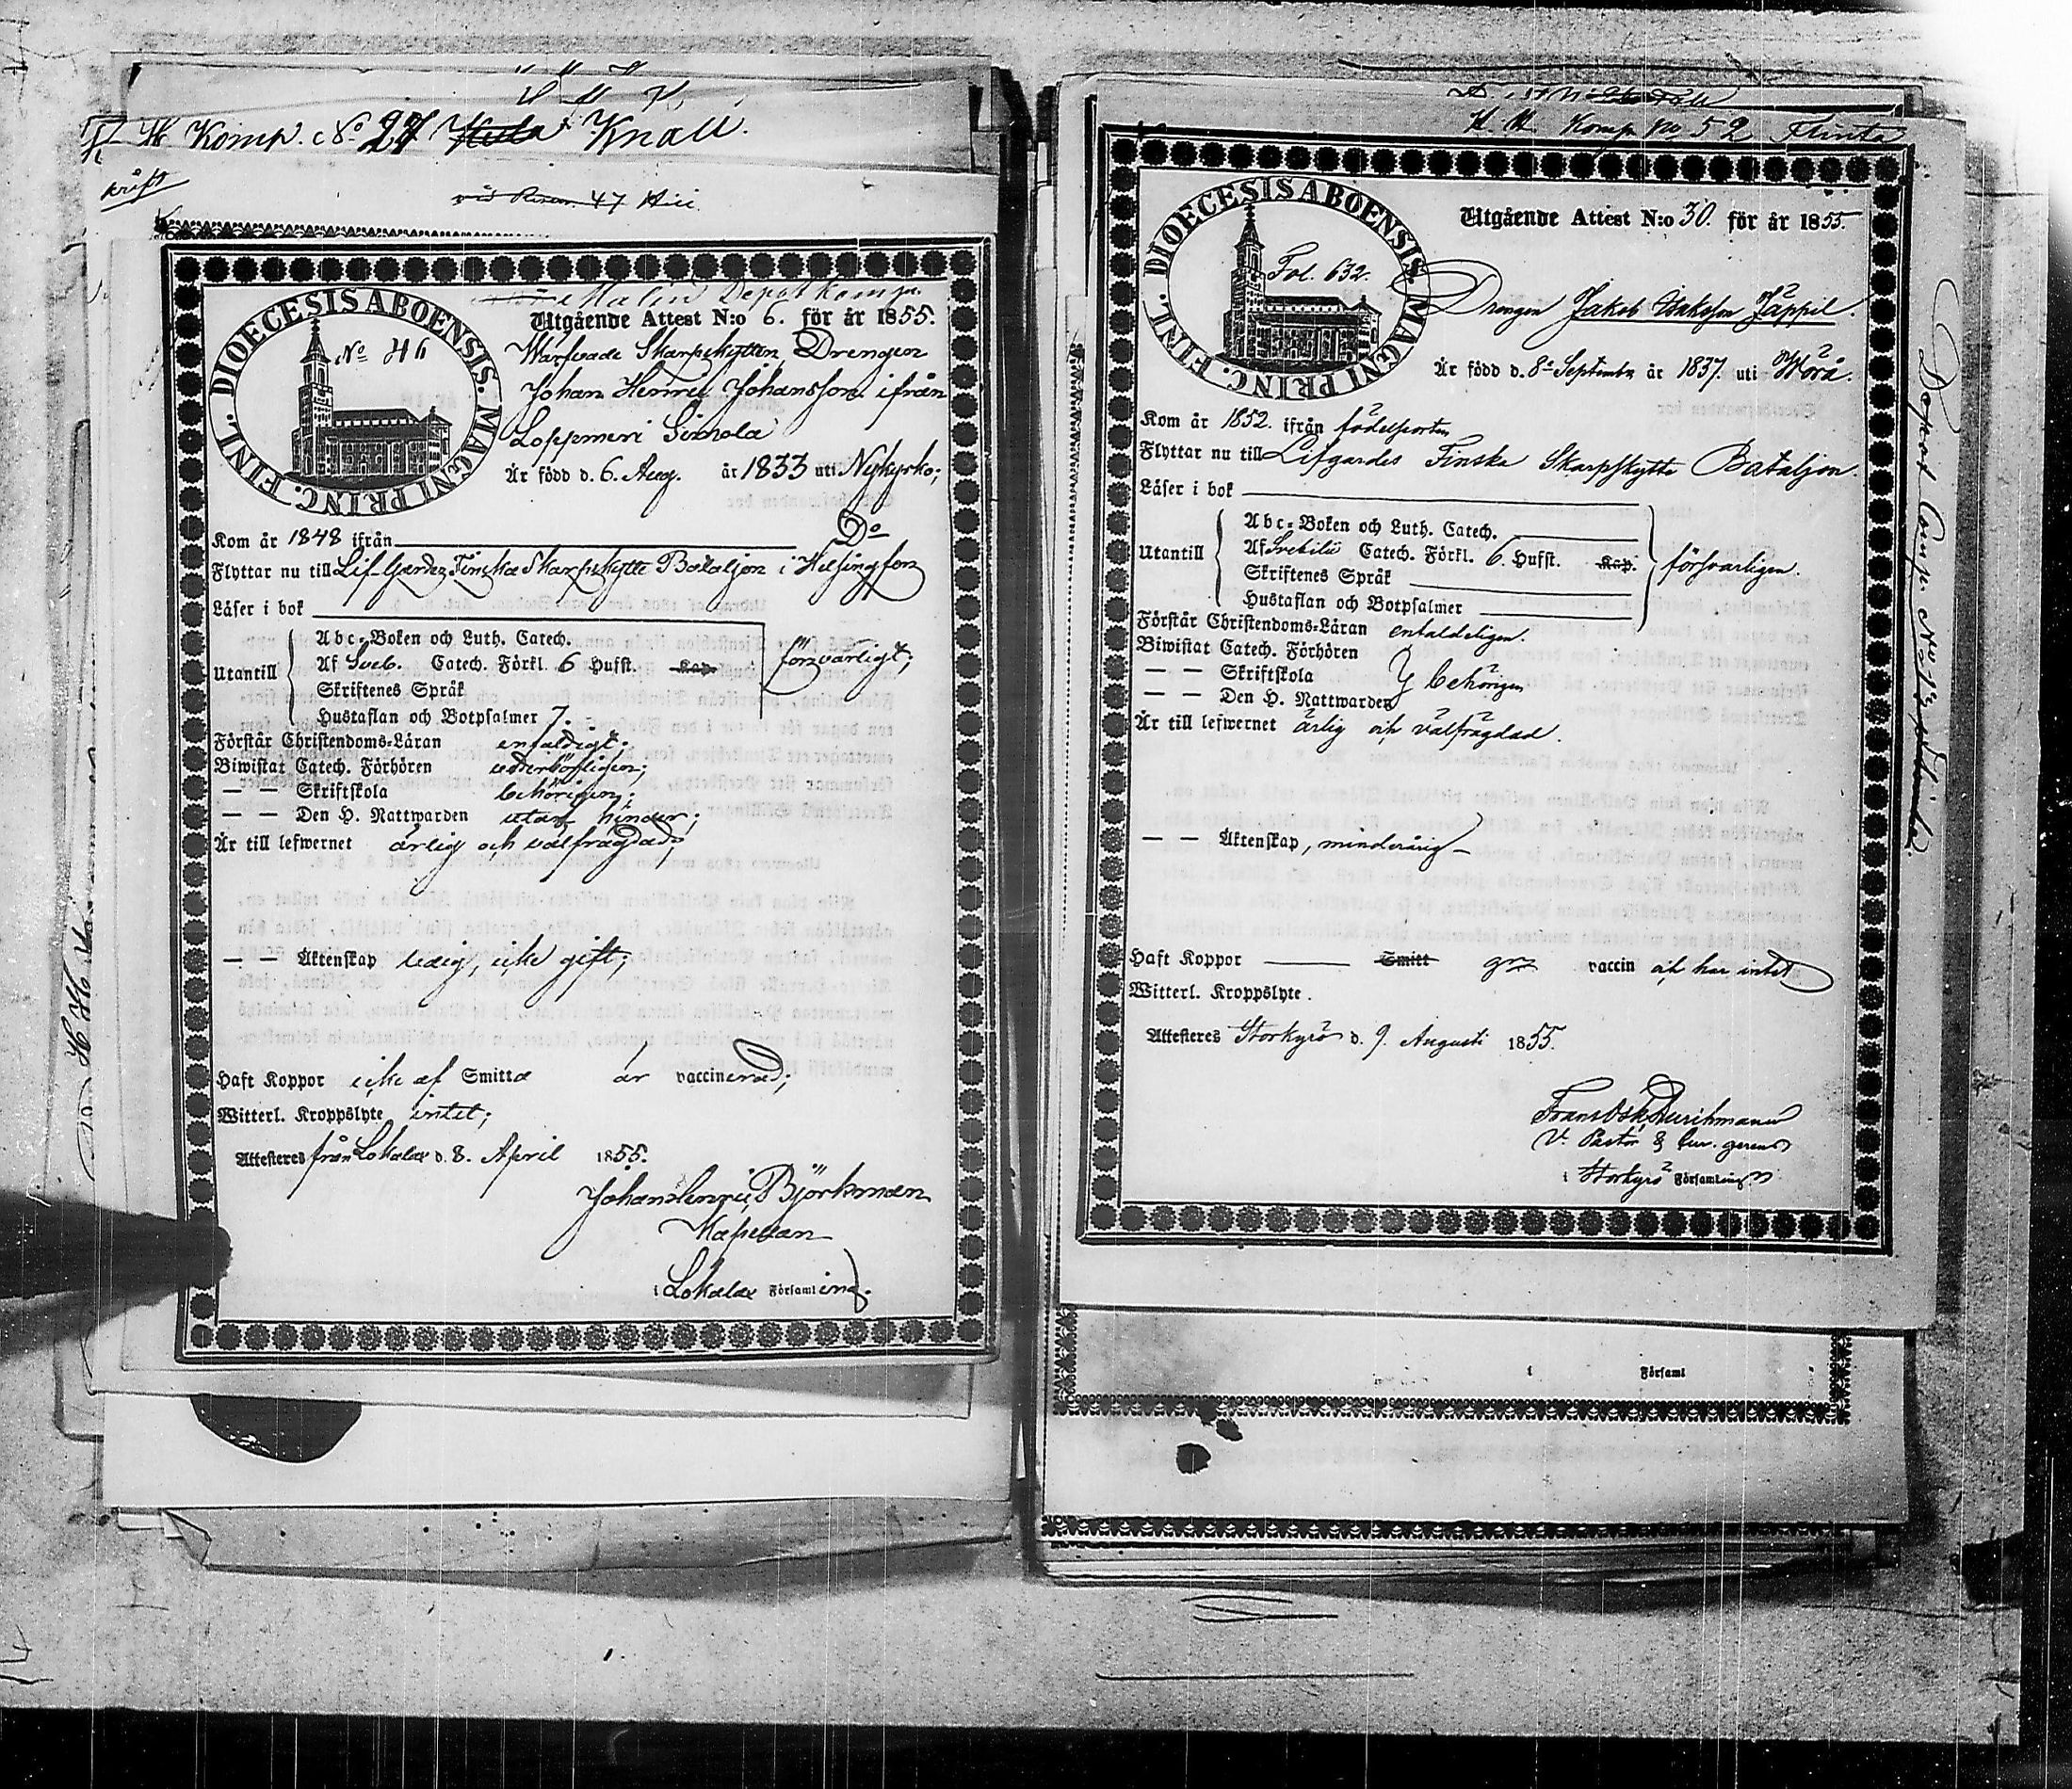 H Komp. No 27 Knall.
47
DIOECESIS ABOENSIS. MAGNI PRINC. FINL.
No 46
Malin Depôt komp.
Utgående Attest N:o 6. för år 1855.
Warfvade Skarpskytten Drengen
Johan Henric Johansson ifrån
Loppmeri Simola
Är född d. 6. Aug. år 1833 uti Nykyrko;
Kom år 1848 ifrån Do
Flyttar nu till Lif-Gardes Finska Skarpskytte Bataljon i Helsingfors
Läser i bok
Utantill
Abc-Boken och Luth. Catech.
Af Sveb. Catech. Förkl. 6 Hufst. Kap.
försvarligt;
Skriftenes Språk
Hustaflan och Botpsalmer 7.
Förstår Christendoms-Läran enfaldigt;
Biwistat Catech. Förhören
— — Skriftskola behörigen;
— — Den H. Nattwarden utan hinder;
Är till lefwernet ärlig och välfrägdad;
— — Äktenskap ledig, icke gift;
Haft Koppor icke af Smitta är vaccinerad;
Witterl. Kroppslyte intet;
Attesteres från Lokalax d. 8. April 1855.
Johan Henric Björkman
Kapellan
i Lokalax Församling.
H. K. Komp. No 52 Flinta
DIOECESIS ABOENSIS. MAGNI PRINC. FINL.
Fol. 632.
Utgående Attest N:o 30. för år 1855.
Drengen Jakob Isaksson Jäppil.
Är född d. 8de September år 1837. uti Wörå.
Kom år 1852. ifrån födelseorten
Flyttar nu till Lifgardes Finska Skarpskytte Bataljon.
Läser i bok
Utantill
Abc-Boken och Luth. Catech.
Af Svebilii Catech. Förkl. 6. Hufst. Kap.
försvarligen.
Skriftenes Språk
Hustaflan och Botpsalmer
Förstår Christendoms-Läran enfaldeligen.
Biwistat Catech. Förhören
— — Skriftskola
behörigen
— — Den H. Nattwarden
Är till lefwernet ärlig och välfrägdad.
— — Äktenskap, minderårig
Haft Koppor Smitt gm vaccin och har intet
Witterl. Kroppslyte.
Attesteres Storkyro d. 9. Augusti 1855.
V. Pastor & Cur. gerens
i Storkyro Församling
i Församl